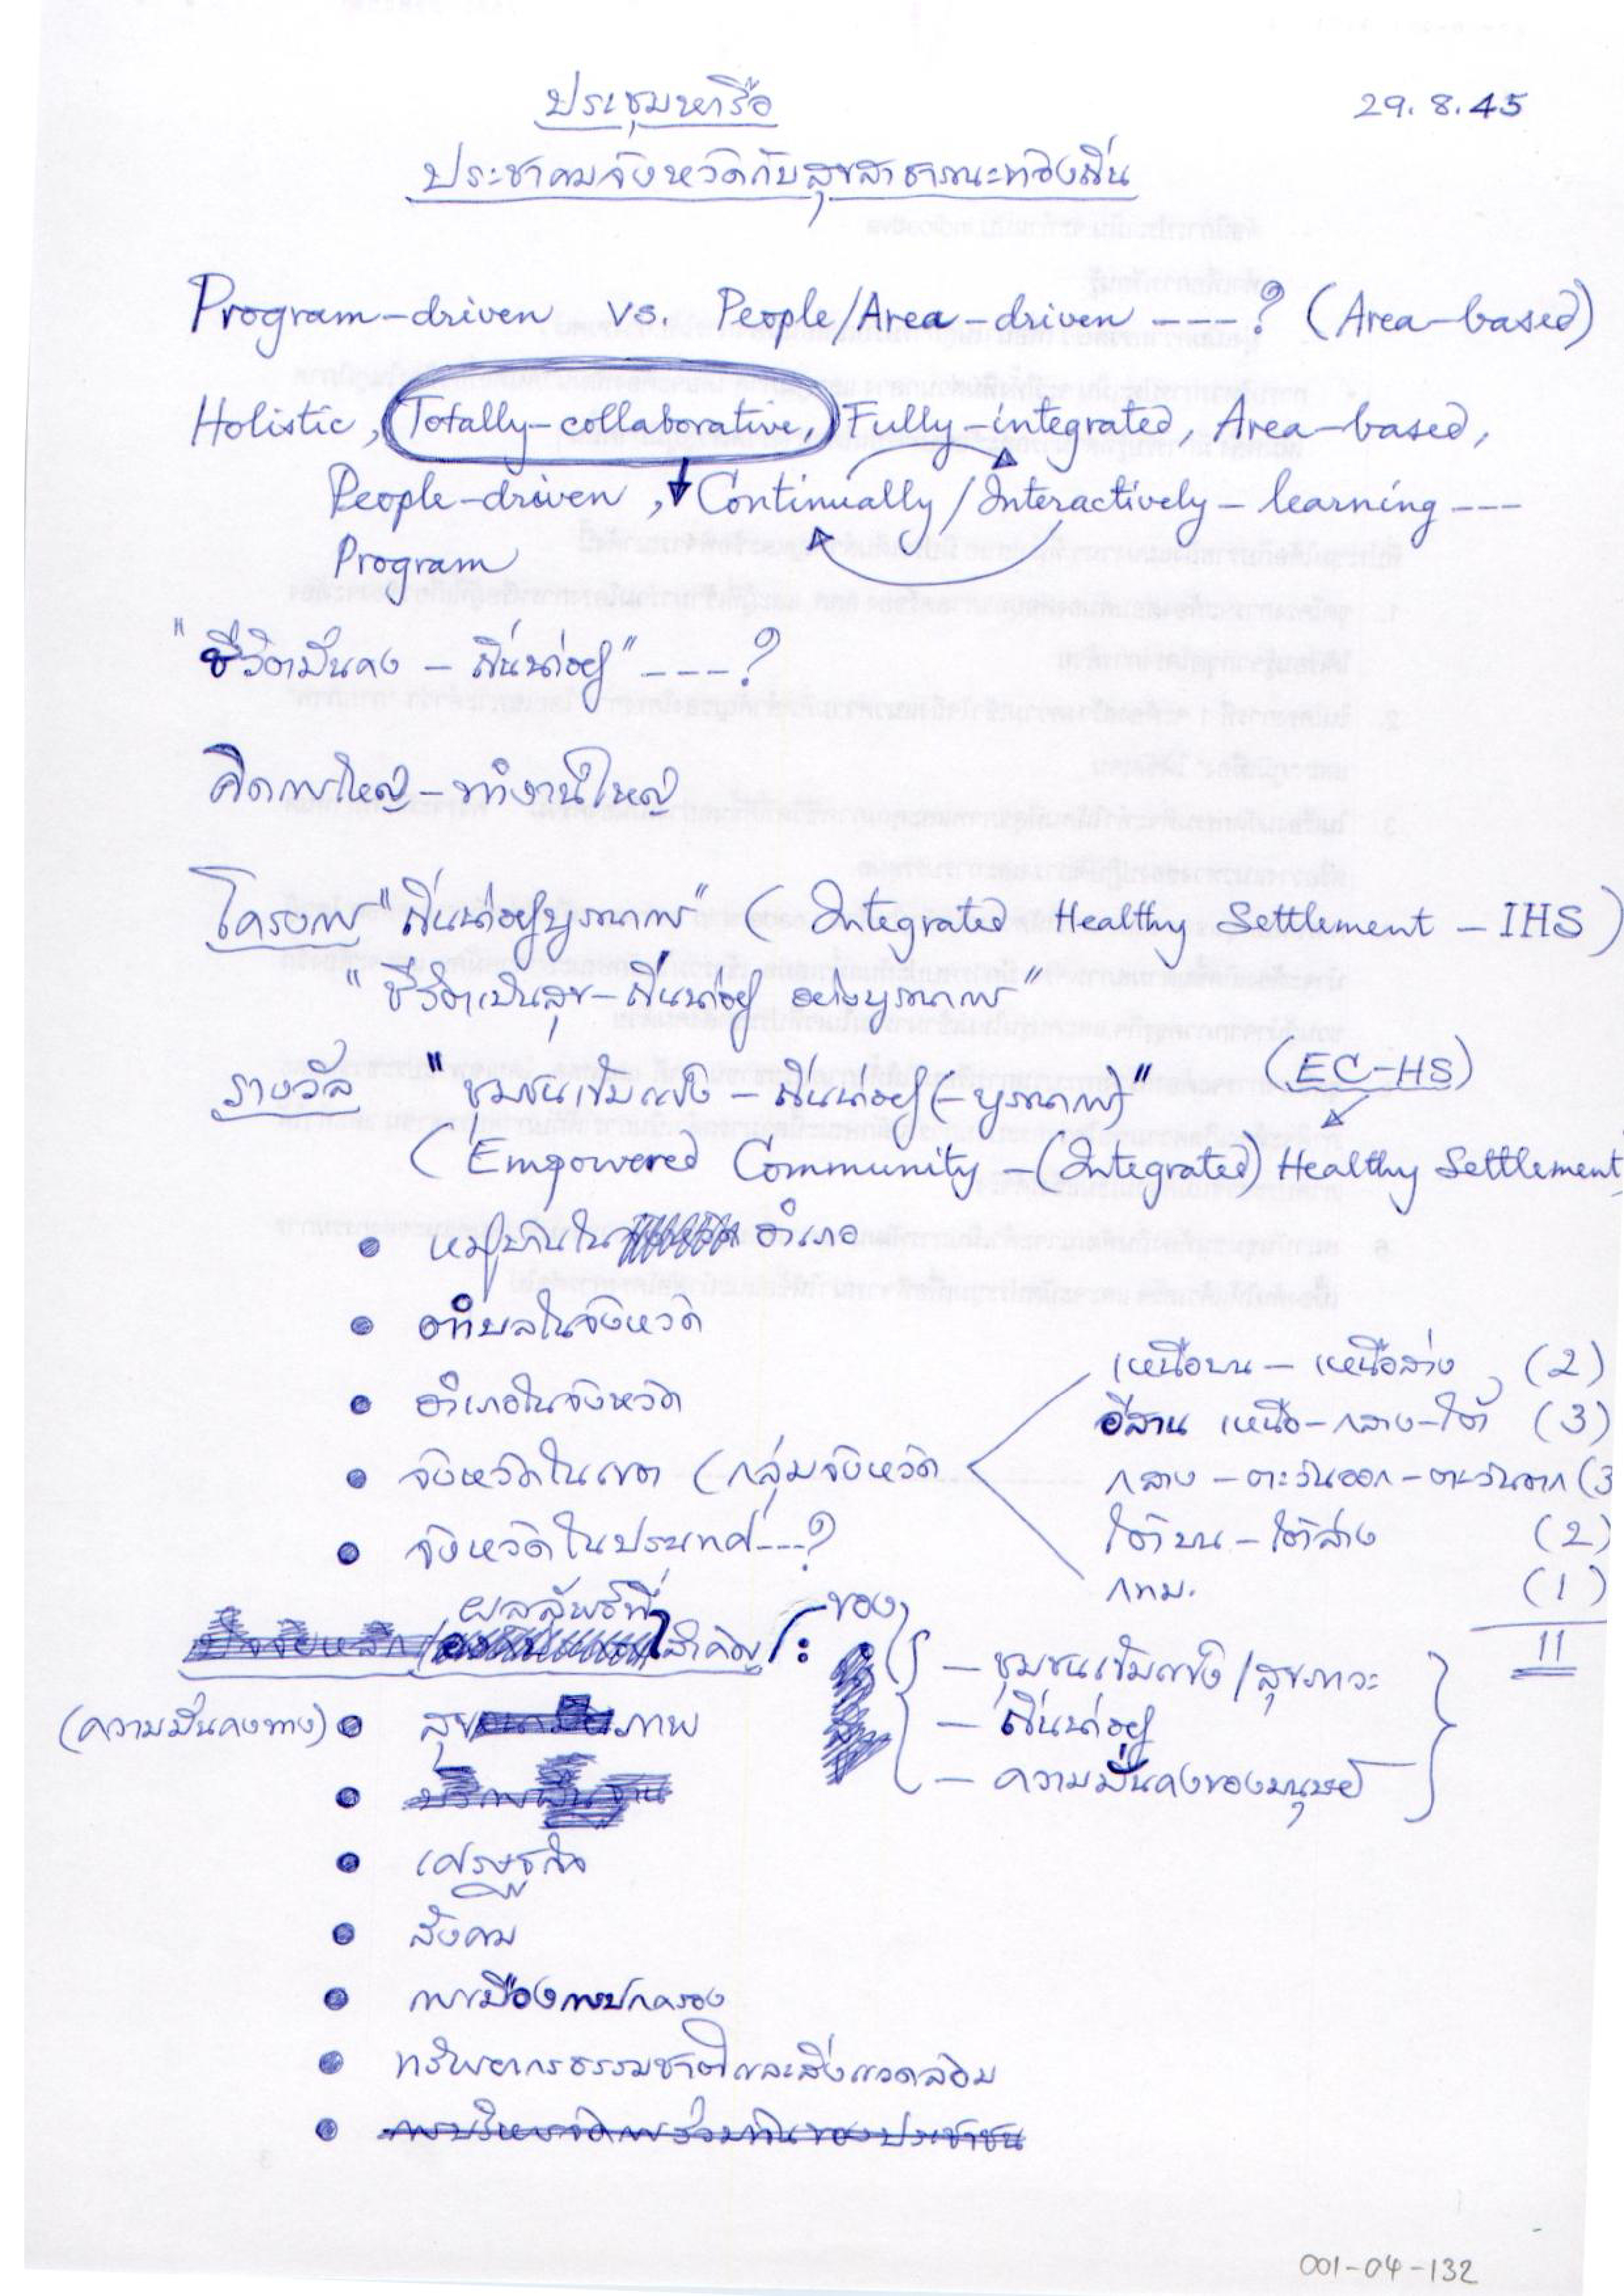 ประชุมหารือ
29.8.45
ประชาคมจังหวัดกับสุขสาธารณะท้องถิ่น
Program-driven vs. People/Area-driven ----? (Area-based)
Holistic, Totally-collaborative, Fully-integrated, Area-based,
People-driven, Continually/Interactively-learning ---
Program
"ชีวิตมั่นคง - ถิ่นน่าอยู่" ----?
คิดการใหญ่ - ทำงานใหญ่
โครงการ "ถิ่นน่าอยู่บูรณาการ" (Integrated Healthy Settlement - IHS)
"ชีวิตเป็นสุข - ถิ่นน่าอยู่ อย่างบูรณาการ"
รางวัล "ชุมชนเข้มแข็ง - ถิ่นน่าอยู่ (-บูรณาการ)" (EC-HS)
(Empowered Community - (Integrated) Healthy Settlement
• หมู่บ้านใน อำเภอ
• ตำบลในจังหวัด
• อำเภอในจังหวัด
• จังหวัดในเขต (กลุ่มจังหวัด
เหนือบน - เหนือล่าง (2)
อีสาน เหนือ-กลาง-ใต้ (3)
กลาง - ตะวันออก - ตะวันตก (3
ใต้บน - ใต้ล่าง (2)
กทม. (1)
11
• จังหวัดในประเทศ---?
ผลลัพธ์ที่
ปัจจัยหลัก/ สำคัญ : ของ
- ชุมชนเข้มแข็ง/สุขภาวะ
- ถิ่นน่าอยู่
- ความมั่นคงของมนุษย์
(ความมั่นคงทาง) • สุขภาพ
• บริการพื้นฐาน
• เศรษฐกิจ
• สังคม
• การเมืองการปกครอง
• ทรัพยากรธรรมชาติและสิ่งแวดล้อม
• การบริหารจัดการร่วมกันของประชาชน
001-04-132